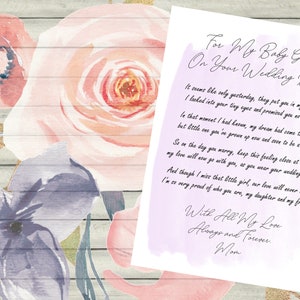 For My Baby G
On Your Wedding
It seems like only yesterday, they put you in m
I looked into your tiny eyes and promised you
In that moment I had known, my dream had come
but little one you've grown up now and soon to be a
So on the day you marry, keep this feeling close
my love will vow to you, as you wear your wedding
And though I miss that little girl, our love will never
I'm so very proud of who you are, my daughter and my f
With All My Love
Always and Forever
Mom